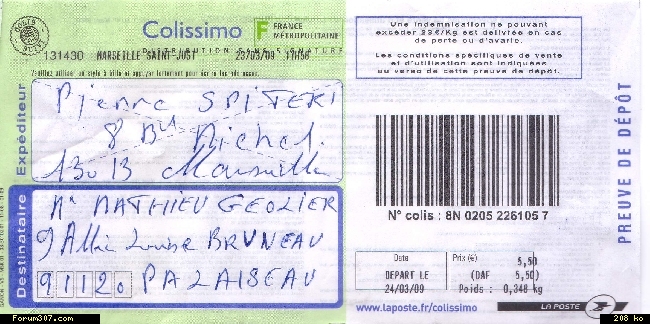 Colissimo F FRANCE MÉTROPOLITAINE
DISTRIBUTION SANS SIGNATURE
131430 MARSEILLE SAINT-JUST 23/03/09 17H56
Expéditeur
Pierre SPITERI
8 Bd Michel
13013 Marseille
Destinataire
Mr MATHIEU GEOLIER
9 Allée Louise BRUNEAU
91120 PALAISEAU
Une indemnisation ne pouvant
excéder 23€/Kg est délivrée en cas
de perte ou d'avarie.
Les conditions spécifiques de vente
et d'utilisation sont indiquées
au verso de cette preuve de dépôt.
PREUVE DE DÉPÔT
N° colis : 8N 0205 226105 7
Date Prix (€) 5,50
DEPART LE (DAF 5,50)
24/03/09 Poids : 0,348 kg
www.laposte.fr/colissimo LA POSTE
Forum307.com 208 ko